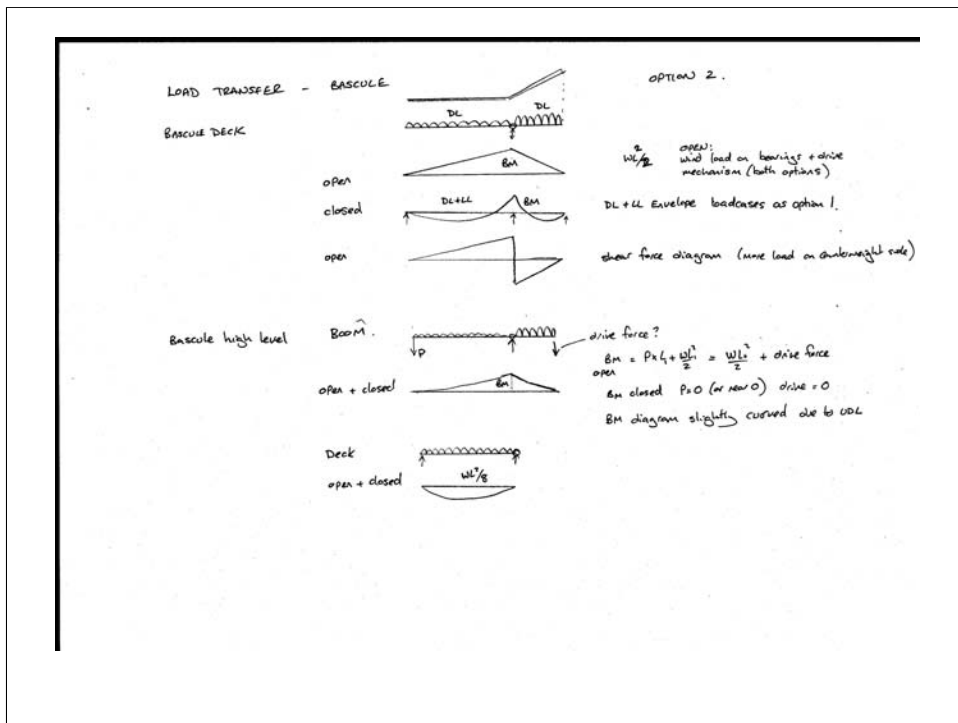 LOAD TRANSFER - BASCULE
OPTION 2.
DL DL
BASCULE DECK
BM
open
WL²/2
OPEN:
wind load on bearings + drive
mechanism (both options)
DL+LL BM
closed
DL + LL Envelope loadcases as option 1.
open
shear force diagram (More load on counterweight side)
Bascule high level BOOM.
drive force?
P
BM open = P×L₁ + WL₁²/2 = WL₂²/2 + drive force
open + closed BM
BM closed P=0 (or near 0) drive = 0
BM diagram slightly curved due to UDL
Deck
open + closed WL²/8